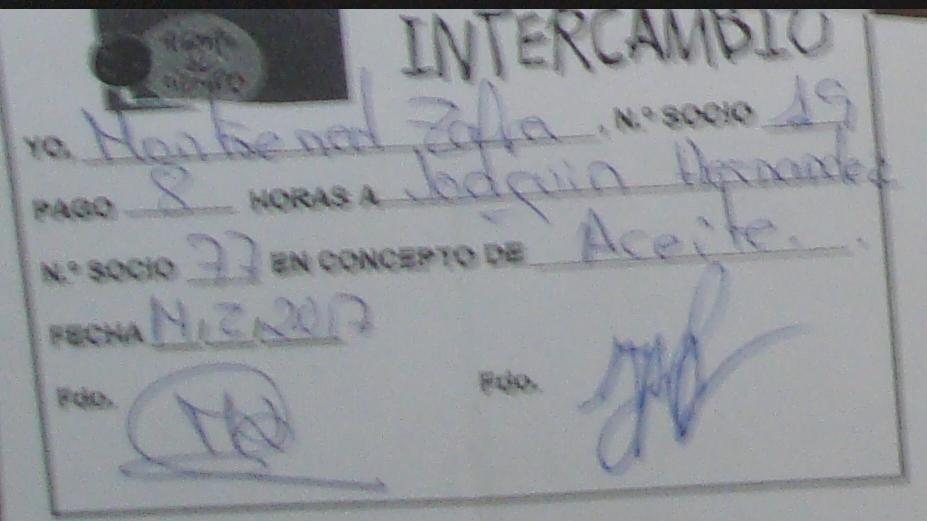 INTERCAMBIO
YO. Montserrat Zafra. N.º SOCIO 19
PAGO 8 HORAS A Joaquin Hernandez
N.º SOCIO 77 EN CONCEPTO DE Aceite.
FECHA 2.2017
Fdo. Fdo.